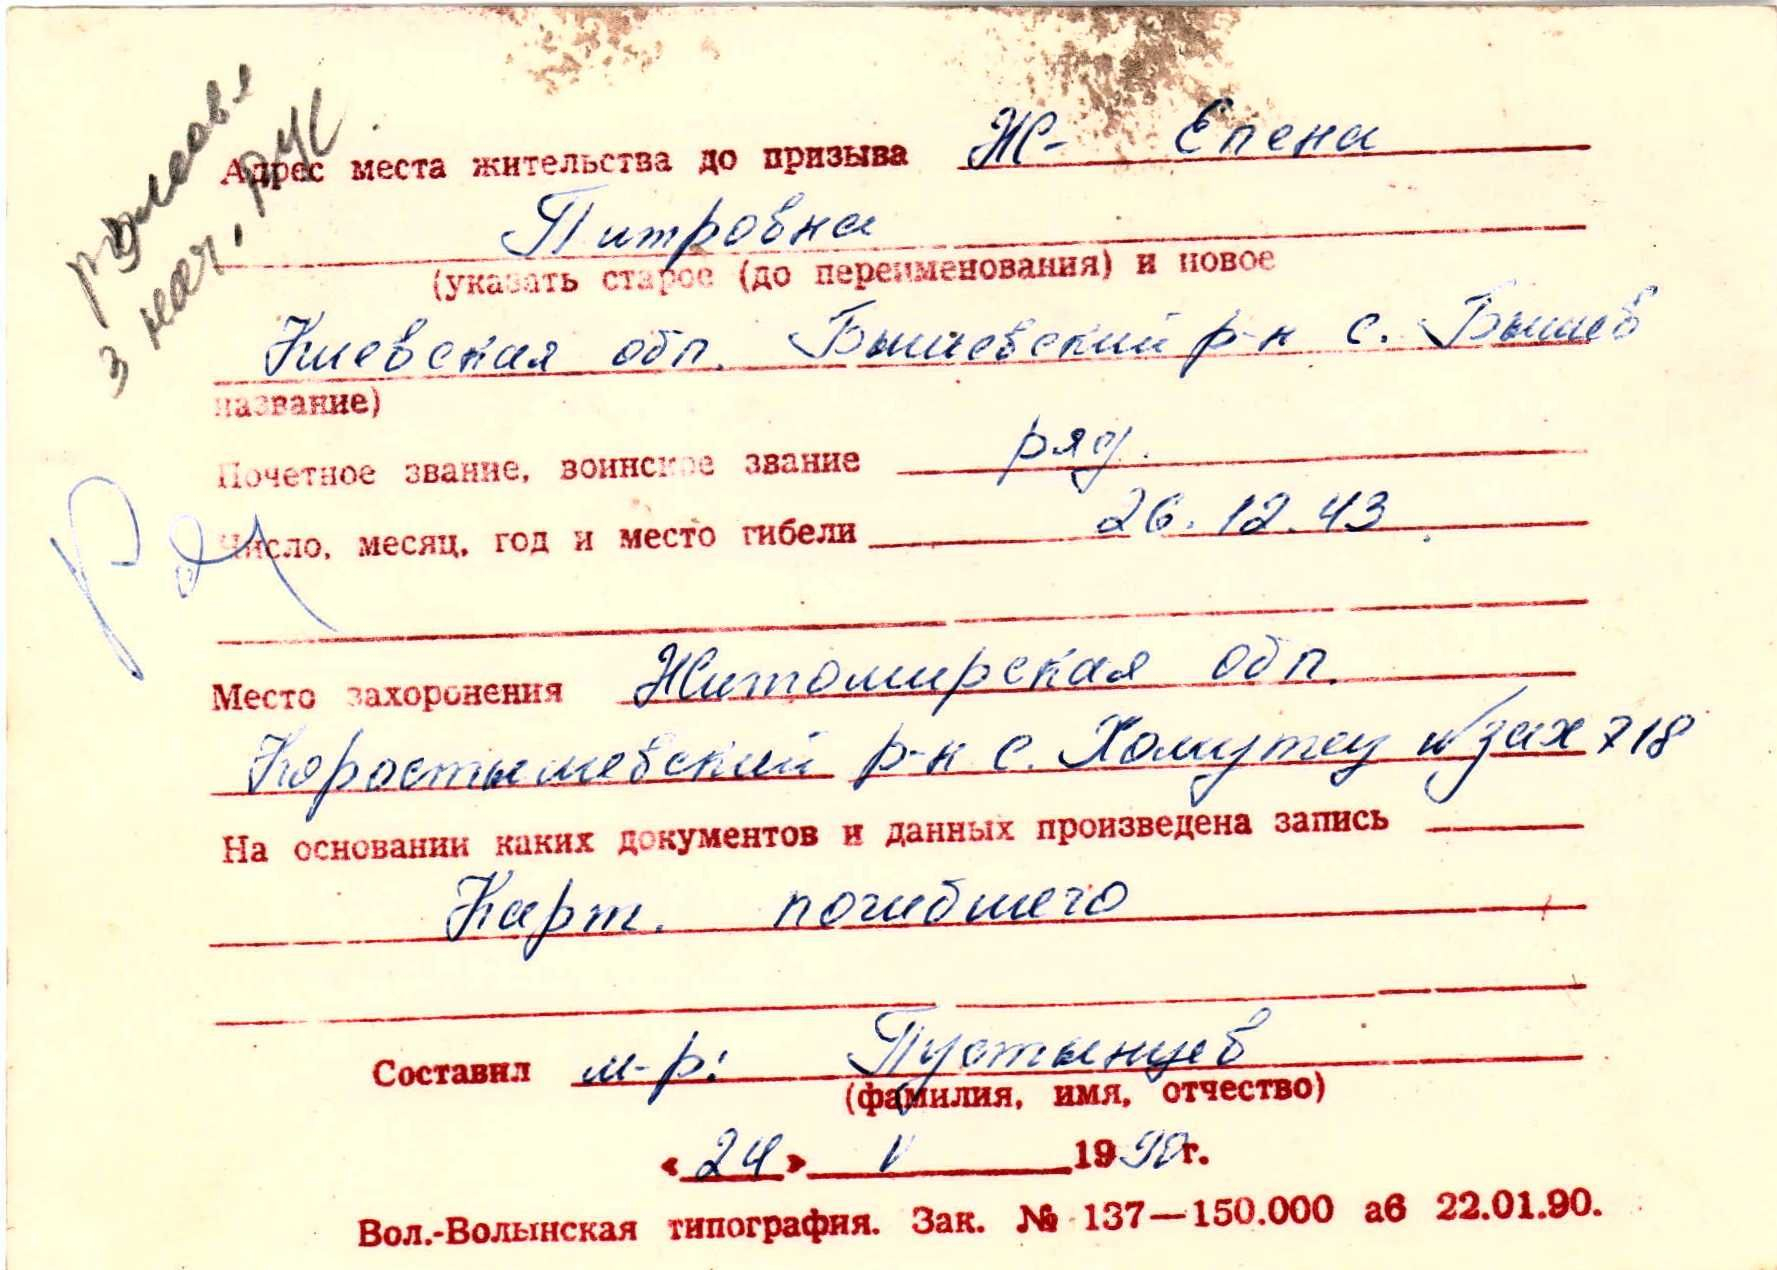 Адрес места жительства до призыва Ж- Елена
Питровна
(указать старое (до переименования) и новое
Киевская обл. Бышевский р-н с. Бышев
название)
Почетное звание, воинское звание ряд.
Число, месяц, год и место гибели 26.12.43
Место захоронения Житомирская обл.
Коростышевский р-н с. Хомутец № зах 718
На основании каких документов и данных произведена запись
Карт. погибшего
Составил м-р: Пустынцев
(фамилия, имя, отчество)
«24» V 1990г.
Вол.-Волынская типография. Зак. № 137—150.000 аб 22.01.90.